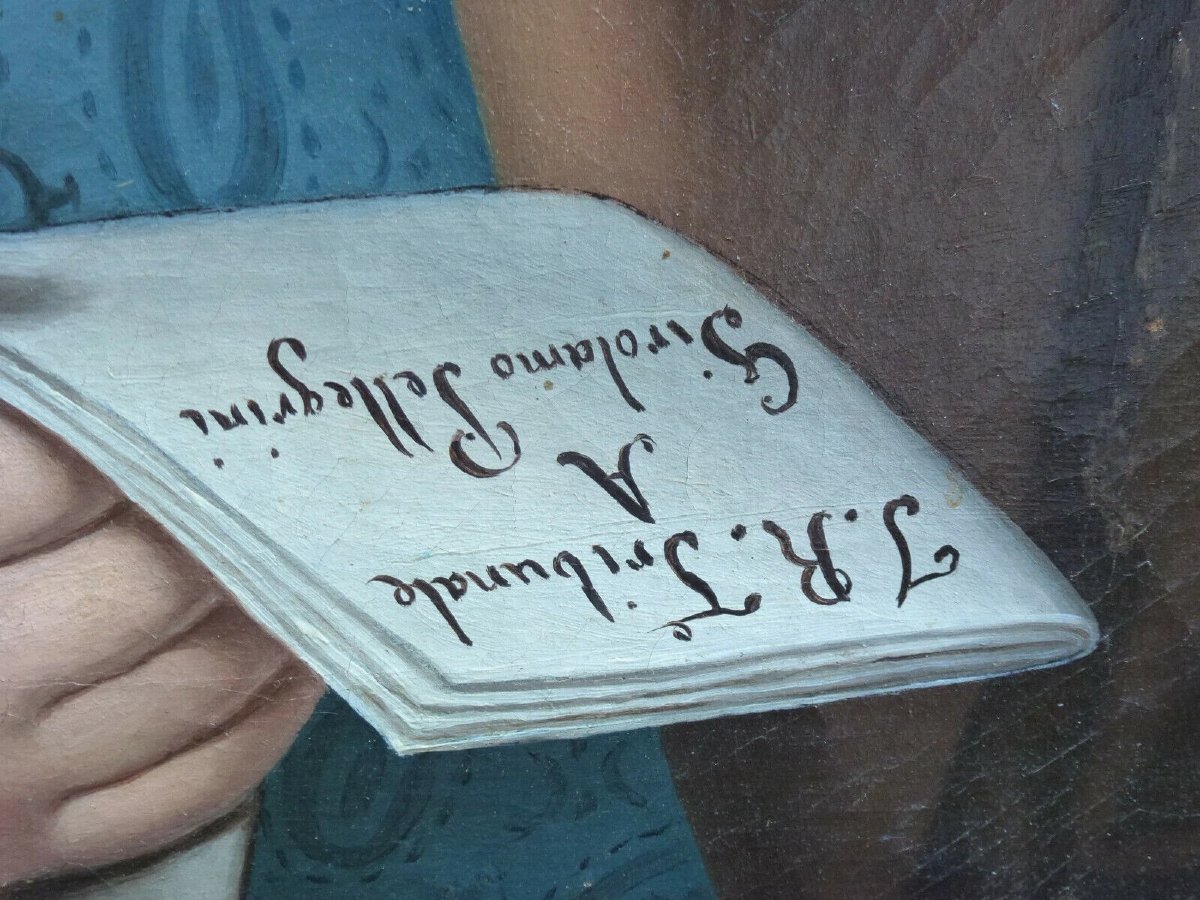 I. R. Tribunale
A
Girolamo Pellegrini